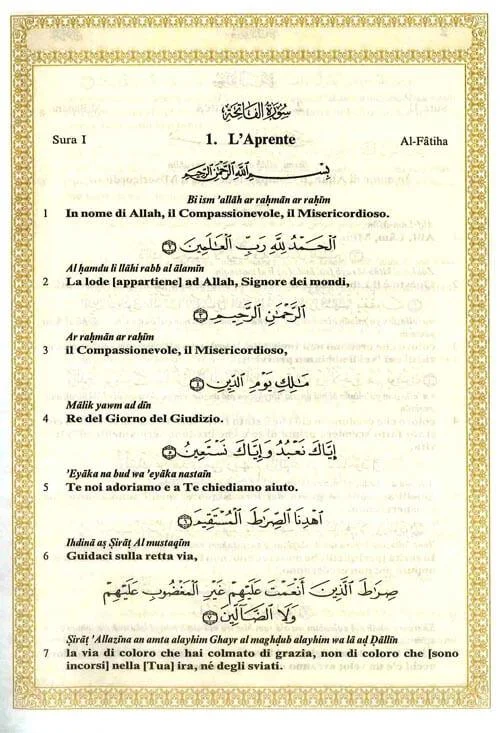 سُورَةُ الفَاتِحَةِ
Sura I 1. L'Aprente Al-Fâtiha
بِسْمِ اللَّهِ الرَّحْمَٰنِ الرَّحِيمِ
Bi ism 'allāh ar raḥmān ar raḥīm
1 In nome di Allah, il Compassionevole, il Misericordioso.
الْحَمْدُ لِلَّهِ رَبِّ الْعَالَمِينَ ۝٢
Al ḥamdu li llāhi rabb al ālamīn
2 La lode [appartiene] ad Allah, Signore dei mondi,
الرَّحْمَٰنِ الرَّحِيمِ ۝٣
Ar raḥmān ar raḥīm
3 il Compassionevole, il Misericordioso,
مَالِكِ يَوْمِ الدِّينِ ۝٤
Mālik yawm ad dīn
4 Re del Giorno del Giudizio.
إِيَّاكَ نَعْبُدُ وَإِيَّاكَ نَسْتَعِينُ ۝٥
'Eyāka na bud wa 'eyāka nastaīn
5 Te noi adoriamo e a Te chiediamo aiuto.
اهْدِنَا الصِّرَاطَ الْمُسْتَقِيمَ ۝٦
Ihdinā aṣ Ṣirāṭ Al mustaqīm
6 Guidaci sulla retta via,
صِرَاطَ الَّذِينَ أَنْعَمْتَ عَلَيْهِمْ غَيْرِ الْمَغْضُوبِ عَلَيْهِمْ
وَلَا الضَّالِّينَ ۝٧
Ṣirāṭ 'Allazīna an amta alayhim Ghayr al maghḍub alayhim wa lā aḍ Ḍāllīn
7 la via di coloro che hai colmato di grazia, non di coloro che [sono
incorsi] nella [Tua] ira, né degli sviati.